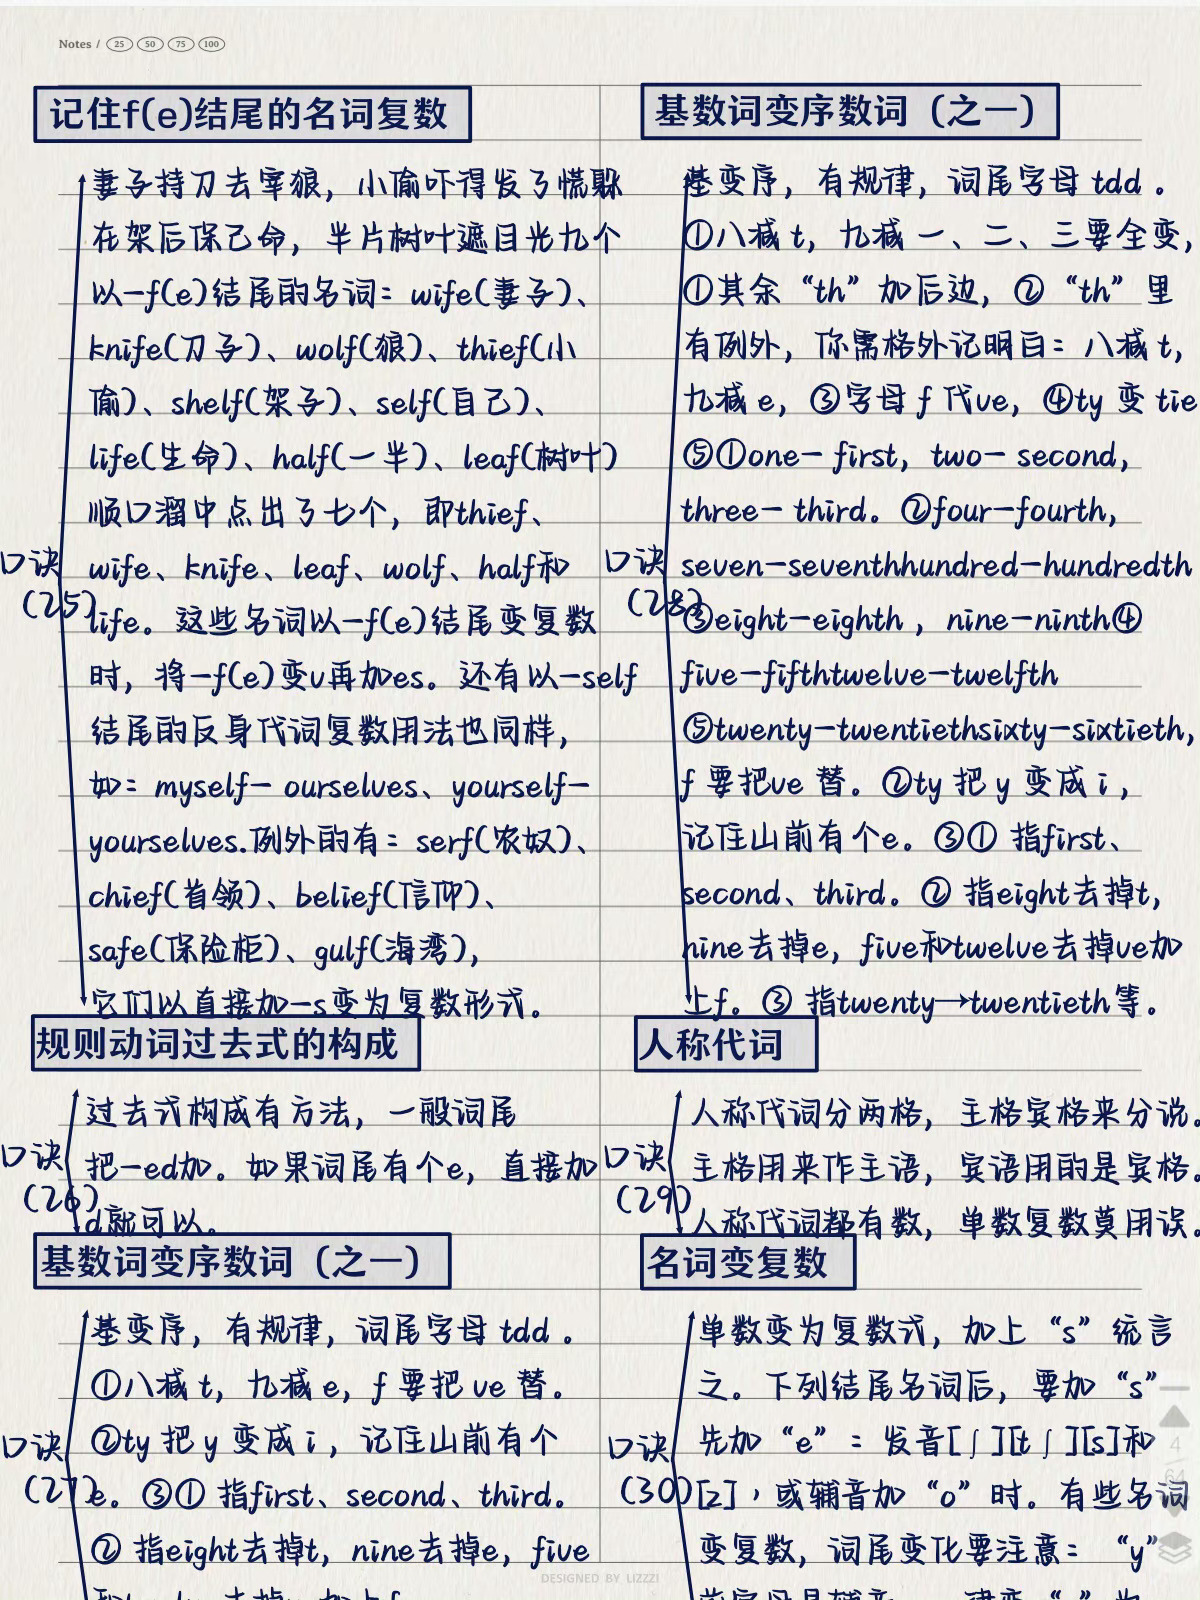 Notes / 25 50 75 100
记住f(e)结尾的名词复数
妻子持刀去宰狼，小偷吓得发了慌躲
在架后保己命，半片树叶遮目光九个
以—f(e)结尾的名词：wife(妻子)、
knife(刀子)、wolf(狼)、thief(小
偷)、shelf(架子)、self(自己)、
life(生命)、half(一半)、leaf(树叶)
顺口溜中点出了七个，即thief、
口诀(25)
wife、knife、leaf、wolf、half和
life。这些名词以—f(e)结尾变复数
时，将—f(e)变v再加es。还有以—self
结尾的反身代词复数用法也同样，
如：myself— ourselves、yourself—
yourselves.例外的有：serf(农奴)、
chief(首领)、belief(信仰)、
safe(保险柜)、gulf(海湾)，
它们以直接加—s变为复数形式。
规则动词过去式的构成
过去式构成有方法，一般词尾
口诀(26)
把—ed加。如果词尾有个e，直接加
d就可以。
基数词变序数词（之一）
基变序，有规律，词尾字母 tdd 。
①八减 t，九减 e，f 要把 ve 替。
口诀(27)
②ty 把 y 变成 i ，记住山前有个
e。③① 指first、second、third。
② 指eight去掉t，nine去掉e，five
基数词变序数词（之一）
基变序，有规律，词尾字母 tdd 。
①八减 t，九减 一、二、三要全变，
①其余“th”加后边，②“th”里
有例外，你需格外记明白：八减 t，
九减 e，③字母 f 代ve，④ty 变 tie
⑤①one— first，two— second，
three— third。②four—fourth，
口诀(28)
seven—seventhhundred—hundredth
③eight—eighth ，nine—ninth④
five—fifthtwelve—twelfth
⑤twenty—twentiethsixty—sixtieth，
f 要把ve 替。②ty 把 y 变成 i ，
记住山前有个e。③① 指first、
second、third。② 指eight去掉t，
nine去掉e，five和twelve去掉ve加
上f。③ 指twenty→twentieth等。
人称代词
人称代词分两格，主格宾格来分说。
口诀(29)
主格用来作主语，宾语用的是宾格。
人称代词都有数，单数复数莫用误。
名词变复数
单数变为复数式，加上“s”统言
之。下列结尾名词后，要加“s”
口诀(30)
先加“e”：发音[ʃ][tʃ][s]和
[z]，或辅音加“o”时。有些名词
变复数，词尾变化要注意：“y”
4
64
DESIGNED BY LIZZZI